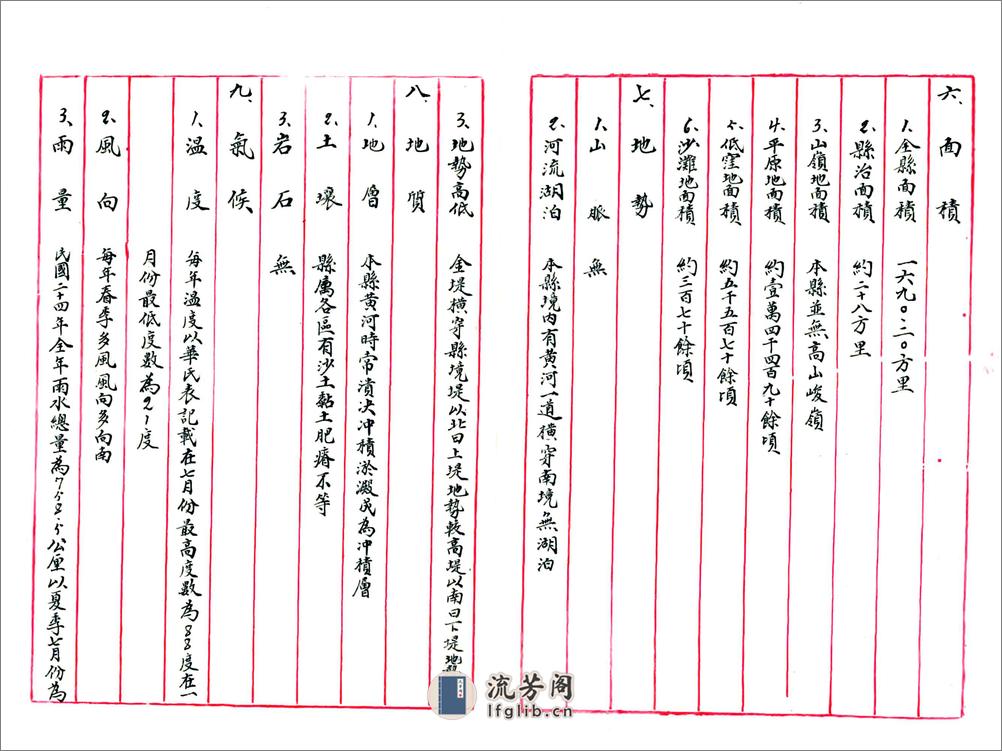 六、面積
1、全縣面積 一六九〇·二〇方里
2、縣治面積 約二十八方里
3、山嶺地面積 本縣並無高山峻嶺
4、平原地面積 約壹萬四千四百九十餘頃
5、低窪地面積 約五千五百七十餘頃
6、沙灘地面積 約三百七十餘頃
七、地勢
1、山脈 無
2、河流湖泊 本縣境內有黃河一道橫穿南境無湖泊
3、地勢高低 金堤橫穿縣境堤以北曰上堤地勢較高堤以南曰下堤地
八、地質
1、地層 本縣黃河時常潰決冲積淤澱成為冲積層
2、土壤 縣属各區有沙土黏土肥瘠不等
3、岩石 無
九、氣候
1、溫度 每年溫度以華氏表記載在七月份最高度數為88度在一
月份最低度數為21度
2、風向 每年春季多風風向多向南
3、雨量 民國二十四年全年雨水總量為758.5公厘以夏季七月份為
流芳阁
lfglib.cn